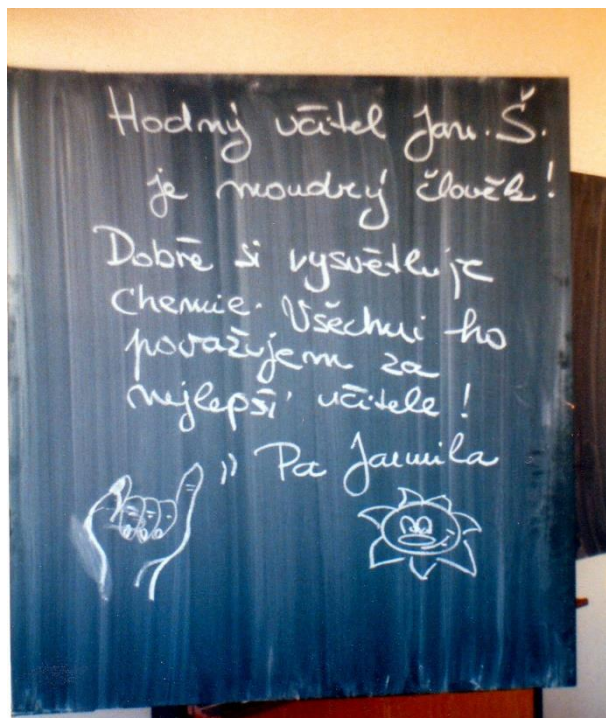 Hodný učitel Jan. Š.
je moudrý člověk!
Dobře si vysvětluje
chemie. Všechni ho
považujem za
nejlepší učitele!
Pa Jarmila